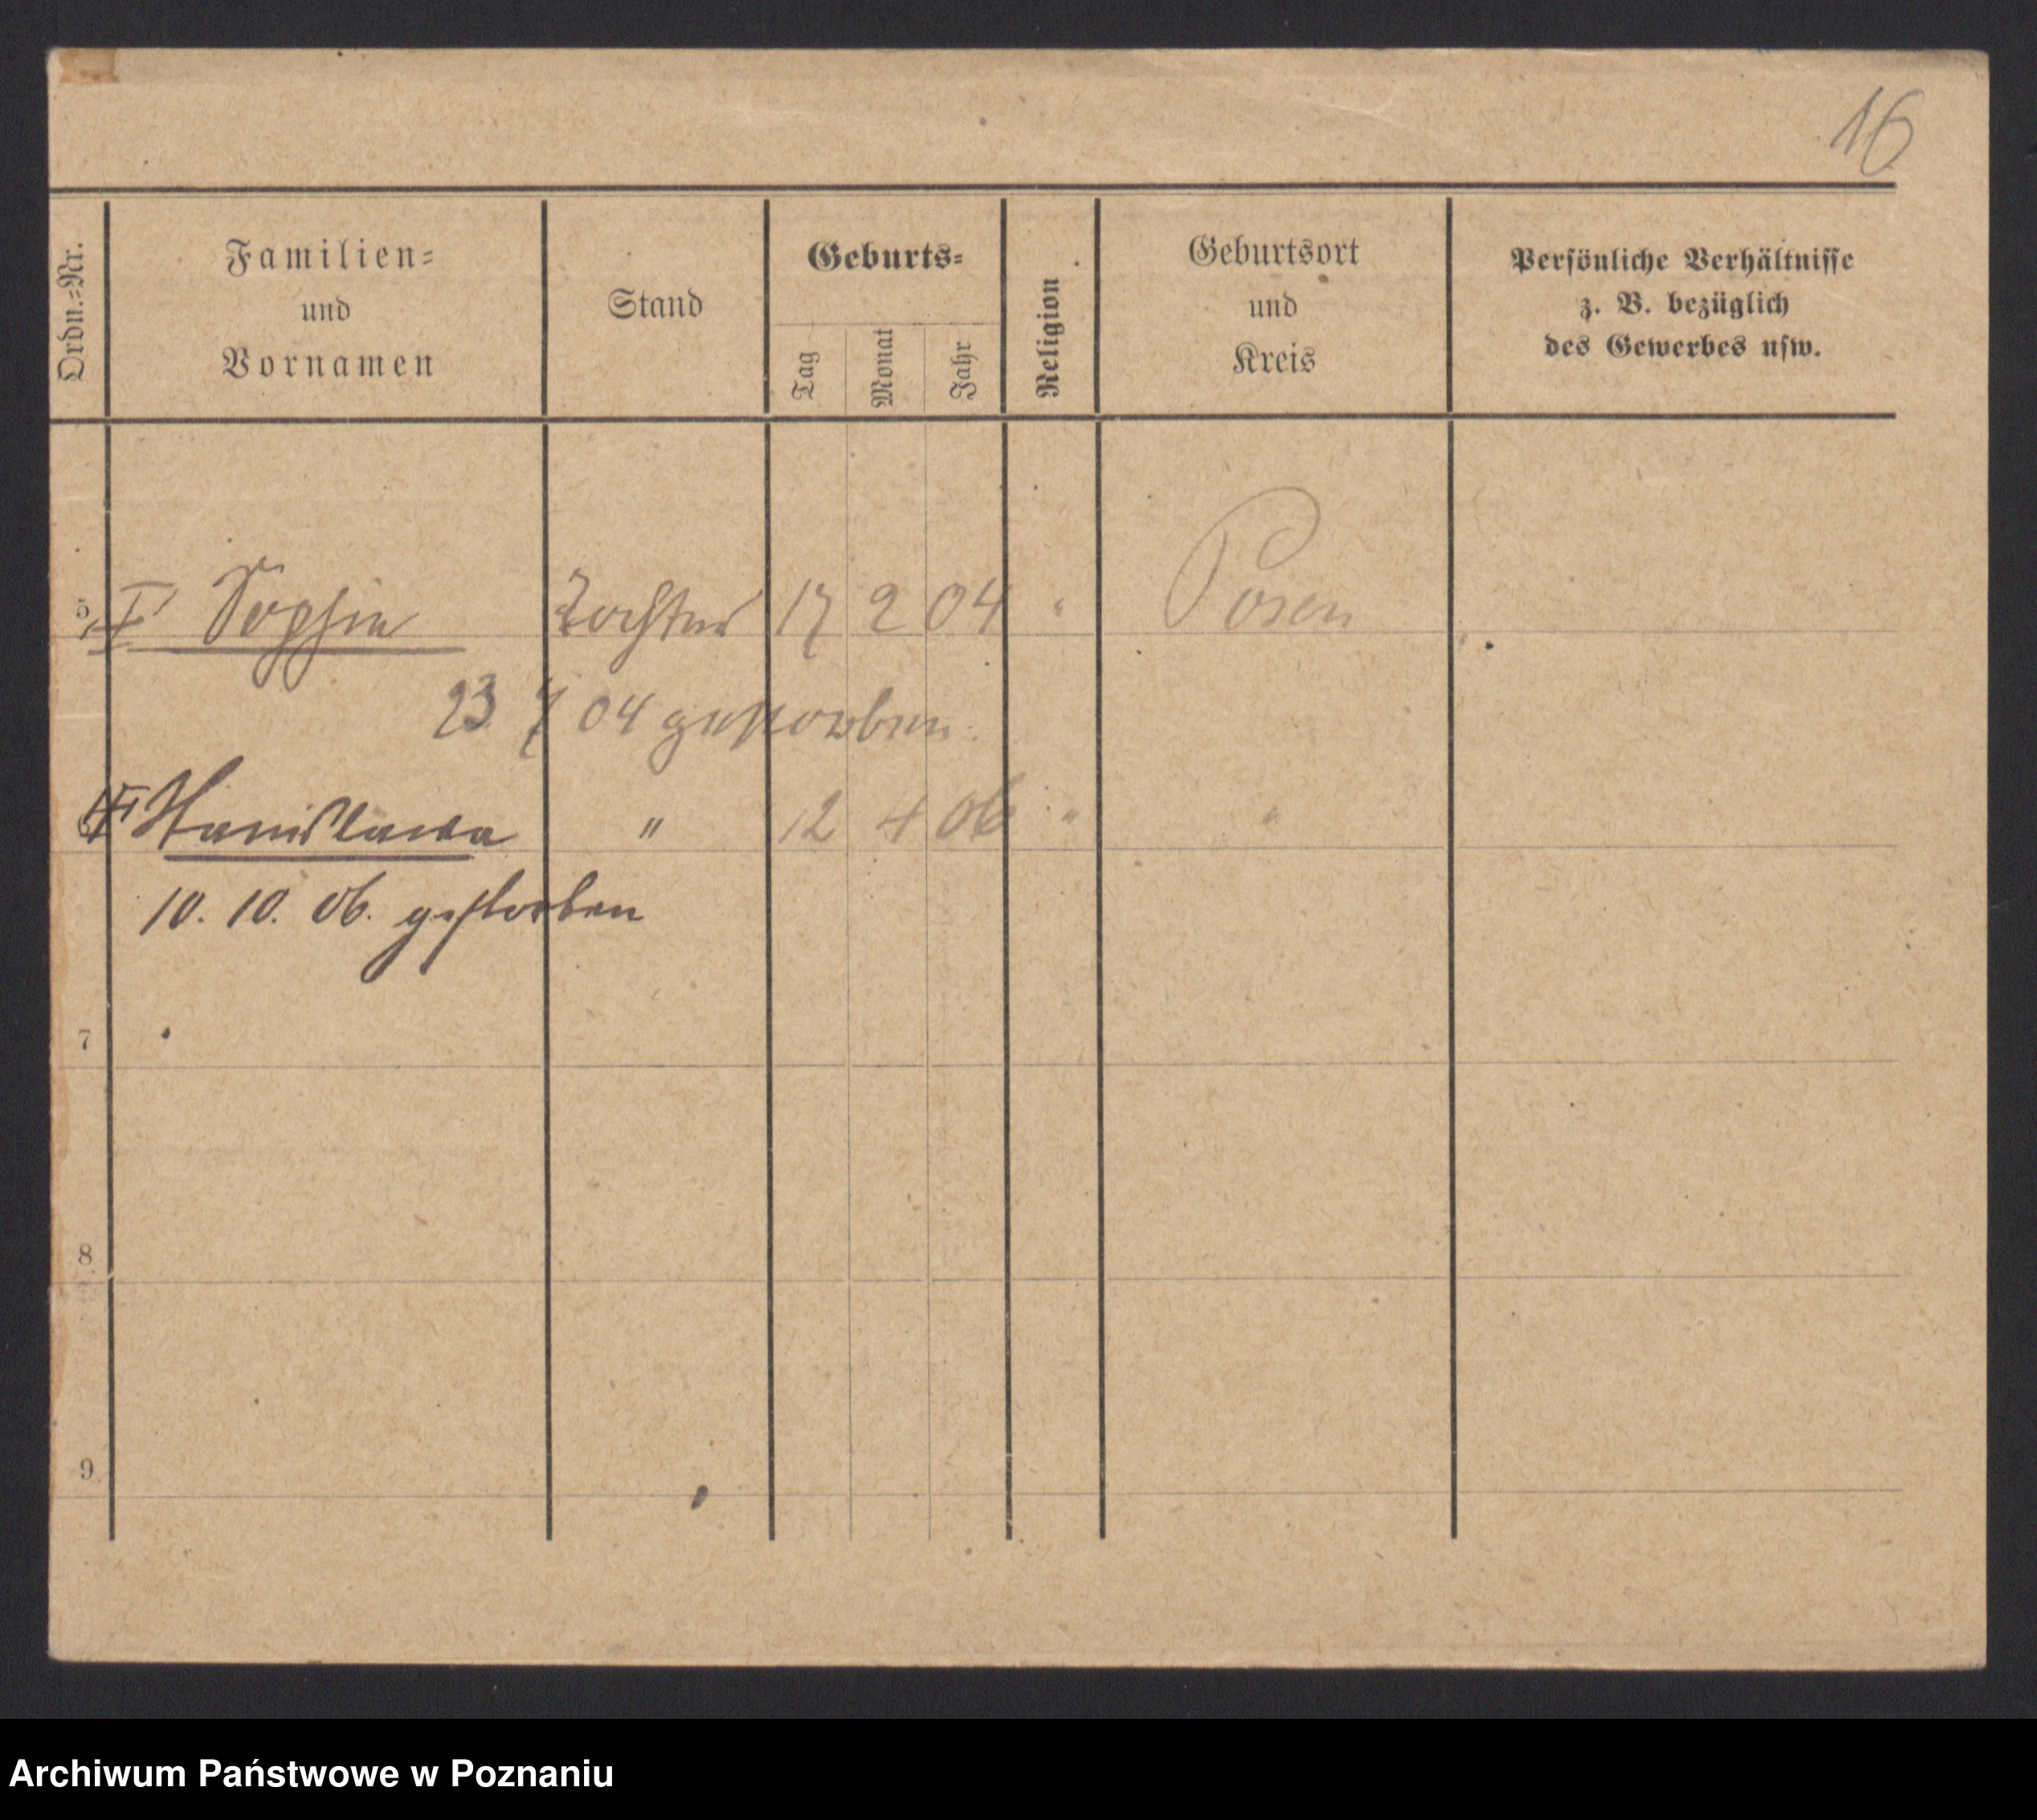 16
Ordn.-Nr.
Familien-
und
Vornamen
Stand
Geburts-
Tag
Monat
Jahr
Religion
Geburtsort
und
Kreis
Persönliche Verhältnisse
z. B. bezüglich
des Gewerbes usw.
5 Sophie Tochter 17 2 04 " Posen
23 7 04 gestorben.
6 Stanislawa " 12 4 06 " "
10. 10. 06. gestorben
7
8
9
Archiwum Państwowe w Poznaniu